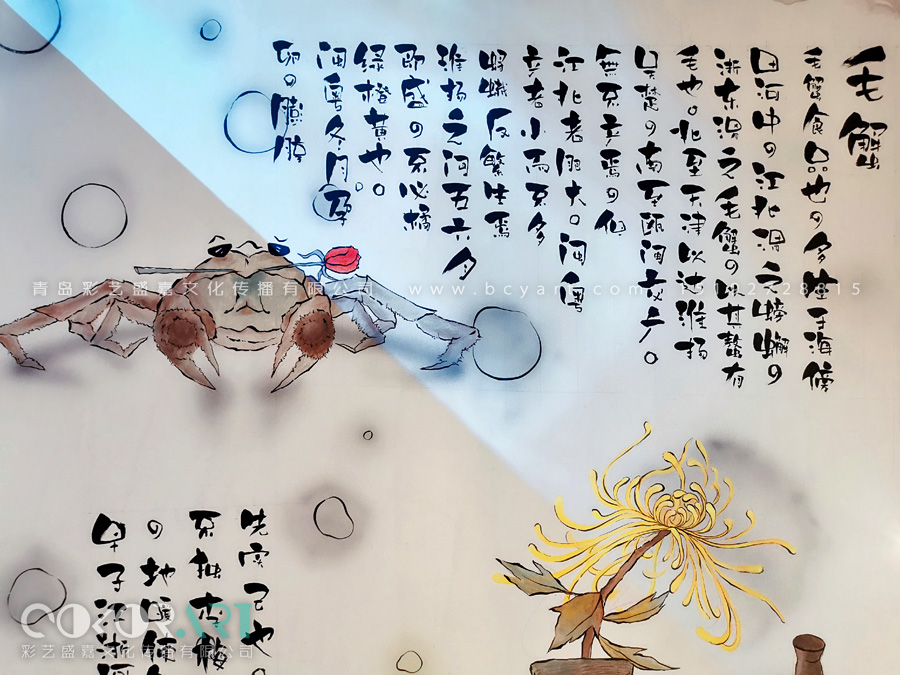 毛蟹
毛蟹食品也の多生于海傍
田河中の江北謂之螃蠏の
浙东謂之毛蟹の以其螯有
毛也。北至天津以迄淮扬
吴楚の南至瓯闽交广。
無不产焉の但
江北者肥大。闽粤
产者小而不多
蝦蟻反繁生焉
淮扬之间五六月
即盛の不必橘
绿橙黄也。
闽粤冬月孕
卵の膨膵
先
不独
の地
早子江浙
青岛彩艺盛嘉文化传播有限公司
COLOR.ART
彩艺盛嘉文化传播有限公司